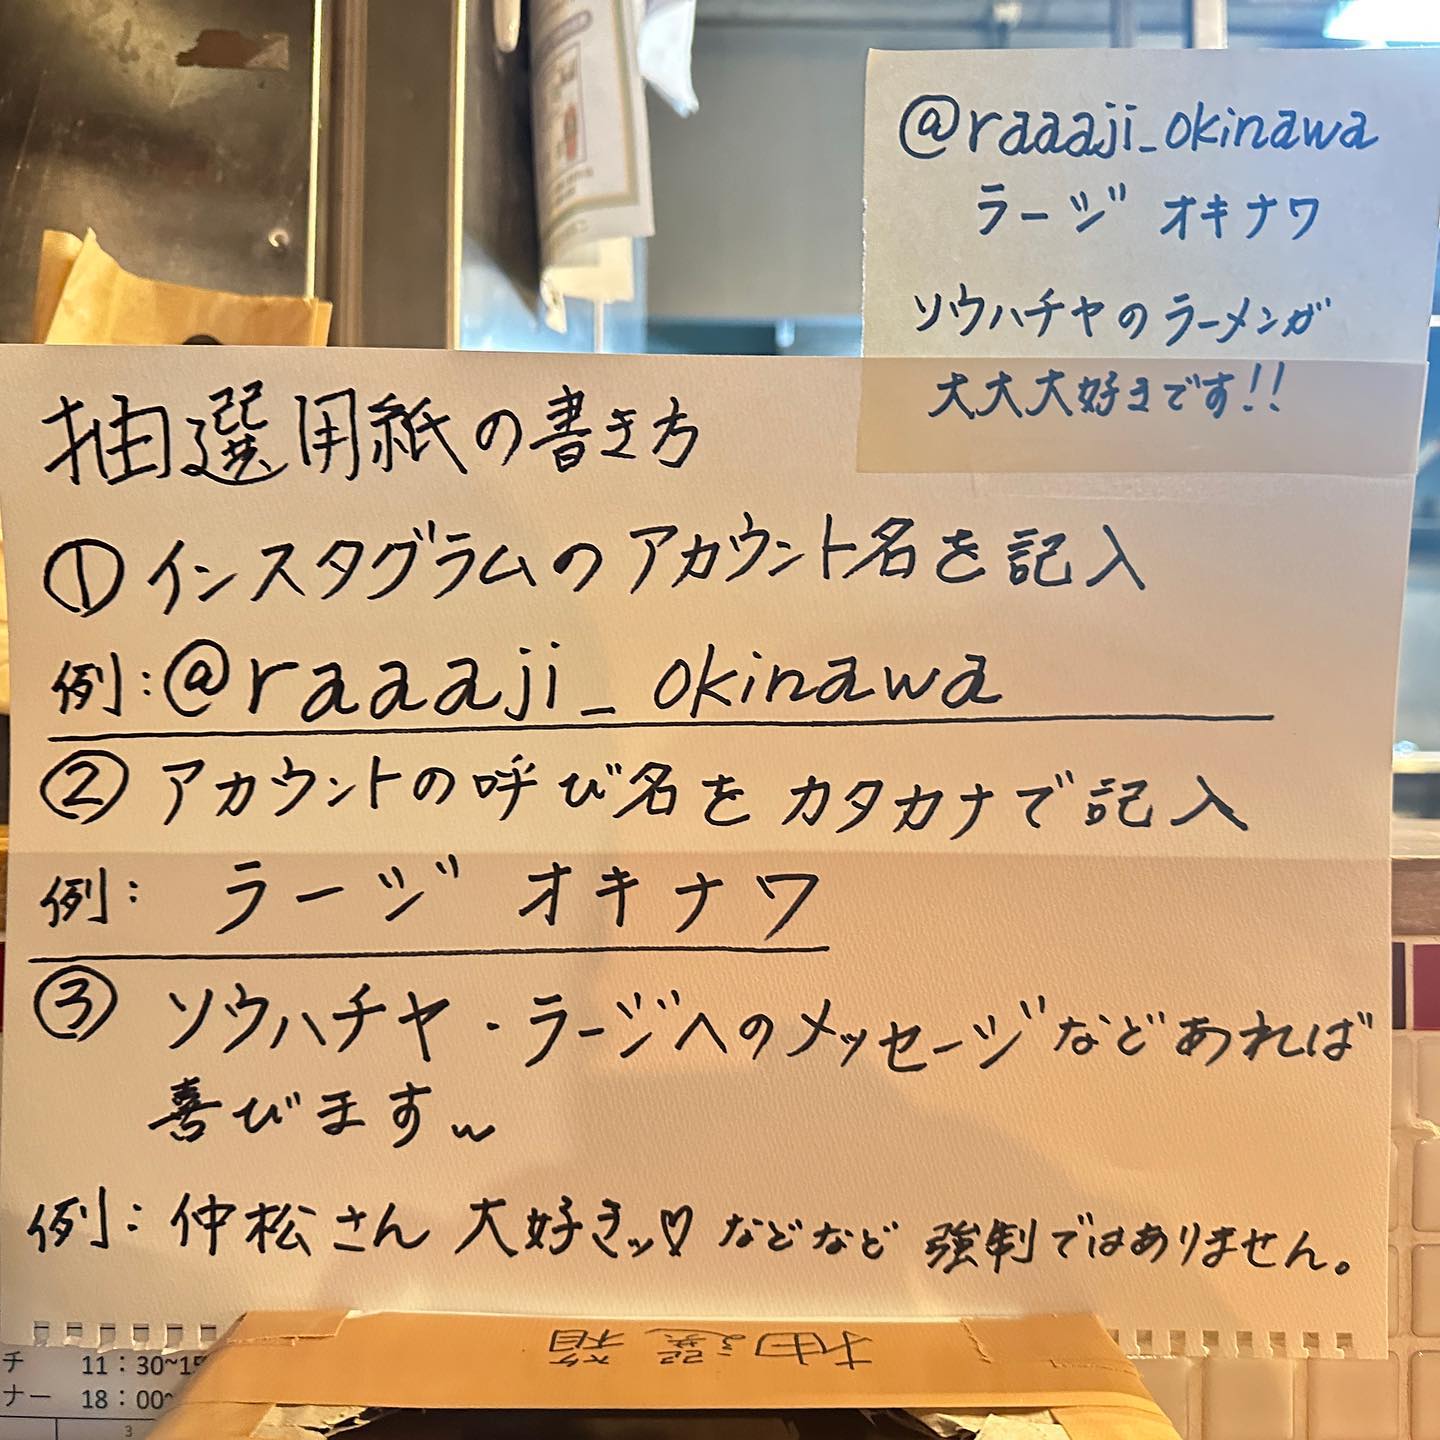 @raaaji_okinawa
ラージ オキナワ
ソウハチヤのラーメンが
大大大好きです!!
抽選用紙の書き方
①インスタグラムのアカウント名を記入
例:@raaaji_okinawa
②アカウントの呼び名をカタカナで記入
例: ラージ オキナワ
③ ソウハチヤ・ラージへのメッセージなどあれば
喜びます~
例:仲松さん 大好きッ♡ などなど 強制ではありません。
抽選箱
チ 11:30~15
ナー 18:00~
3